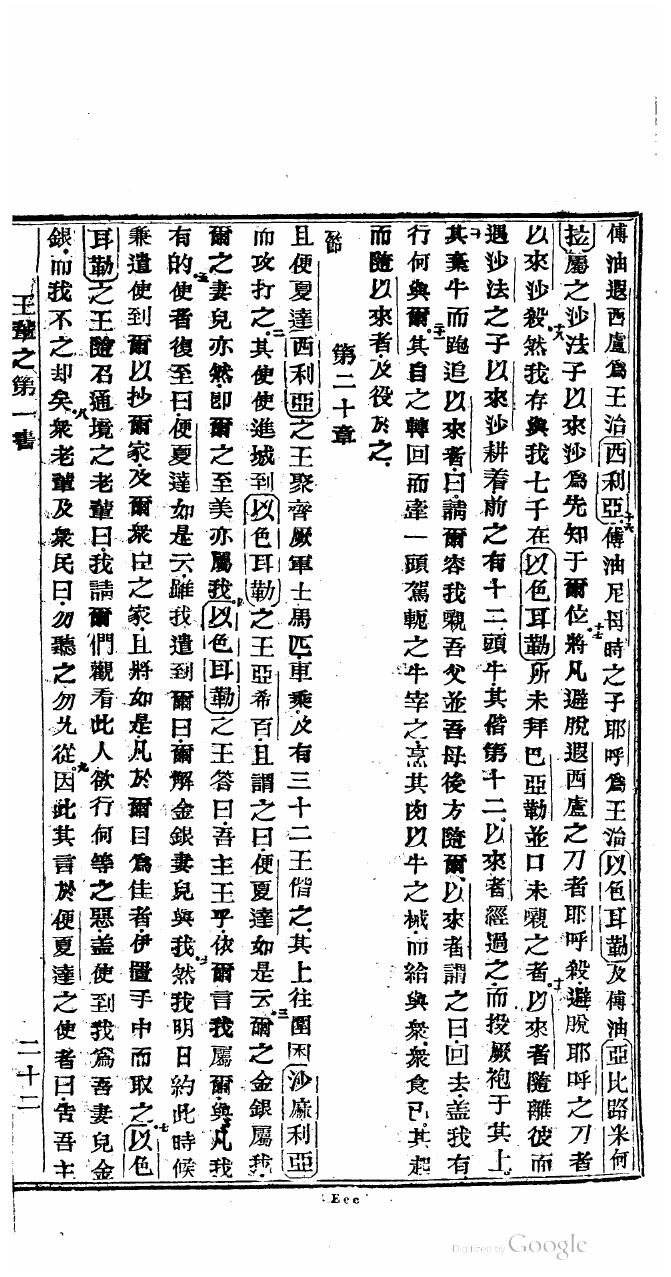 傅油遐西盧爲王治西利亞十六傅油尼母時之子耶呼爲王治以色耳勒及傅油亞比路米何
拉屬之沙法子以來沙爲先知于爾位十七將凡避脫遐西盧之刀者耶呼殺避脫耶呼之刀者
以來沙殺十八然我存與我七子在以色耳勒所未拜巴亞勒並口未嚫之者十九以來者隨離彼而
遇沙法之子以來沙耕着前之有十二頭牛其偕第十二以來者經過之而投厥袍于其上
二十其棄牛而跑追以來者曰請爾容我嚫吾父並吾母後方隨爾以來者謂之曰回去蓋我有
行何與爾二十一其自之轉回而牽一頭駕軛之牛宰之烹其肉以牛之械而給與衆衆食已其起
而隨以來者及役於之
第二十章
節
且便夏達西利亞之王聚齊厥軍士馬匹車乘及有三十二王偕之其上往圍困沙麻利亞
而攻打之二其使使進城到以色耳勒之王亞希百且謂之曰便夏達如是云三爾之金銀屬我
爾之妻兒亦然即爾之至美亦屬我四以色耳勒之王答曰吾主王乎依爾言我屬爾與凡我
有的五使者復至曰便夏達如是云雖我遣到爾曰爾解金銀妻兒與我六然我明日約此時候
乘遣使到爾以抄爾家及爾衆臣之家且將如是凡於爾目爲佳者伊置手中而取之七以色
耳勒之王隨召通境之老輩曰我請爾們觀看此人欲行何等之惡蓋使到我爲吾妻兒金
銀而我不之却矣八衆老輩及衆民曰勿聽之勿允從九因此其言於便夏達之使者曰告吾主
王輩之第一書 二十二
Eee
Digitized by Google